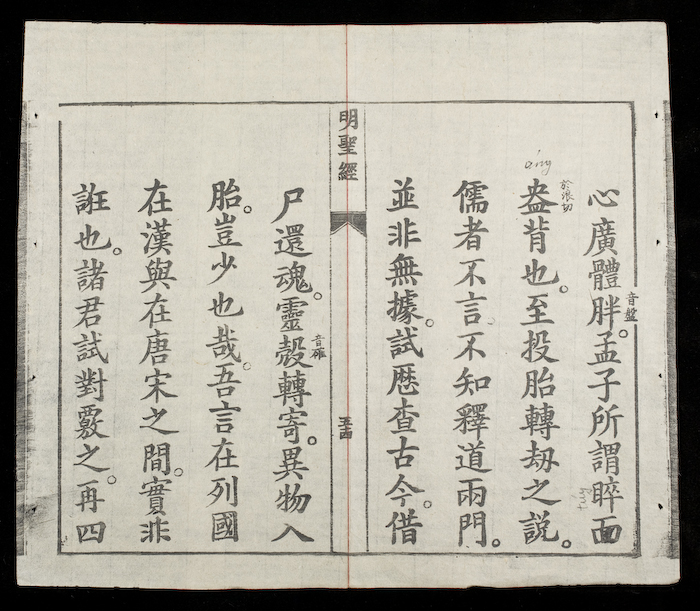 心廣體胖。孟子所謂睟面
音盤
盎背也。至投胎轉劫之說。
於浪切
áng
儒者不言不知釋道兩門。
並非無據。試歷查古今。借
明聖經
五十四
尸還魂。靈殼轉寄。異物入
音確
胎。豈少也哉。吾言在列國
在漢與在唐宋之間。實非
誑也。諸君試對覈之。再四